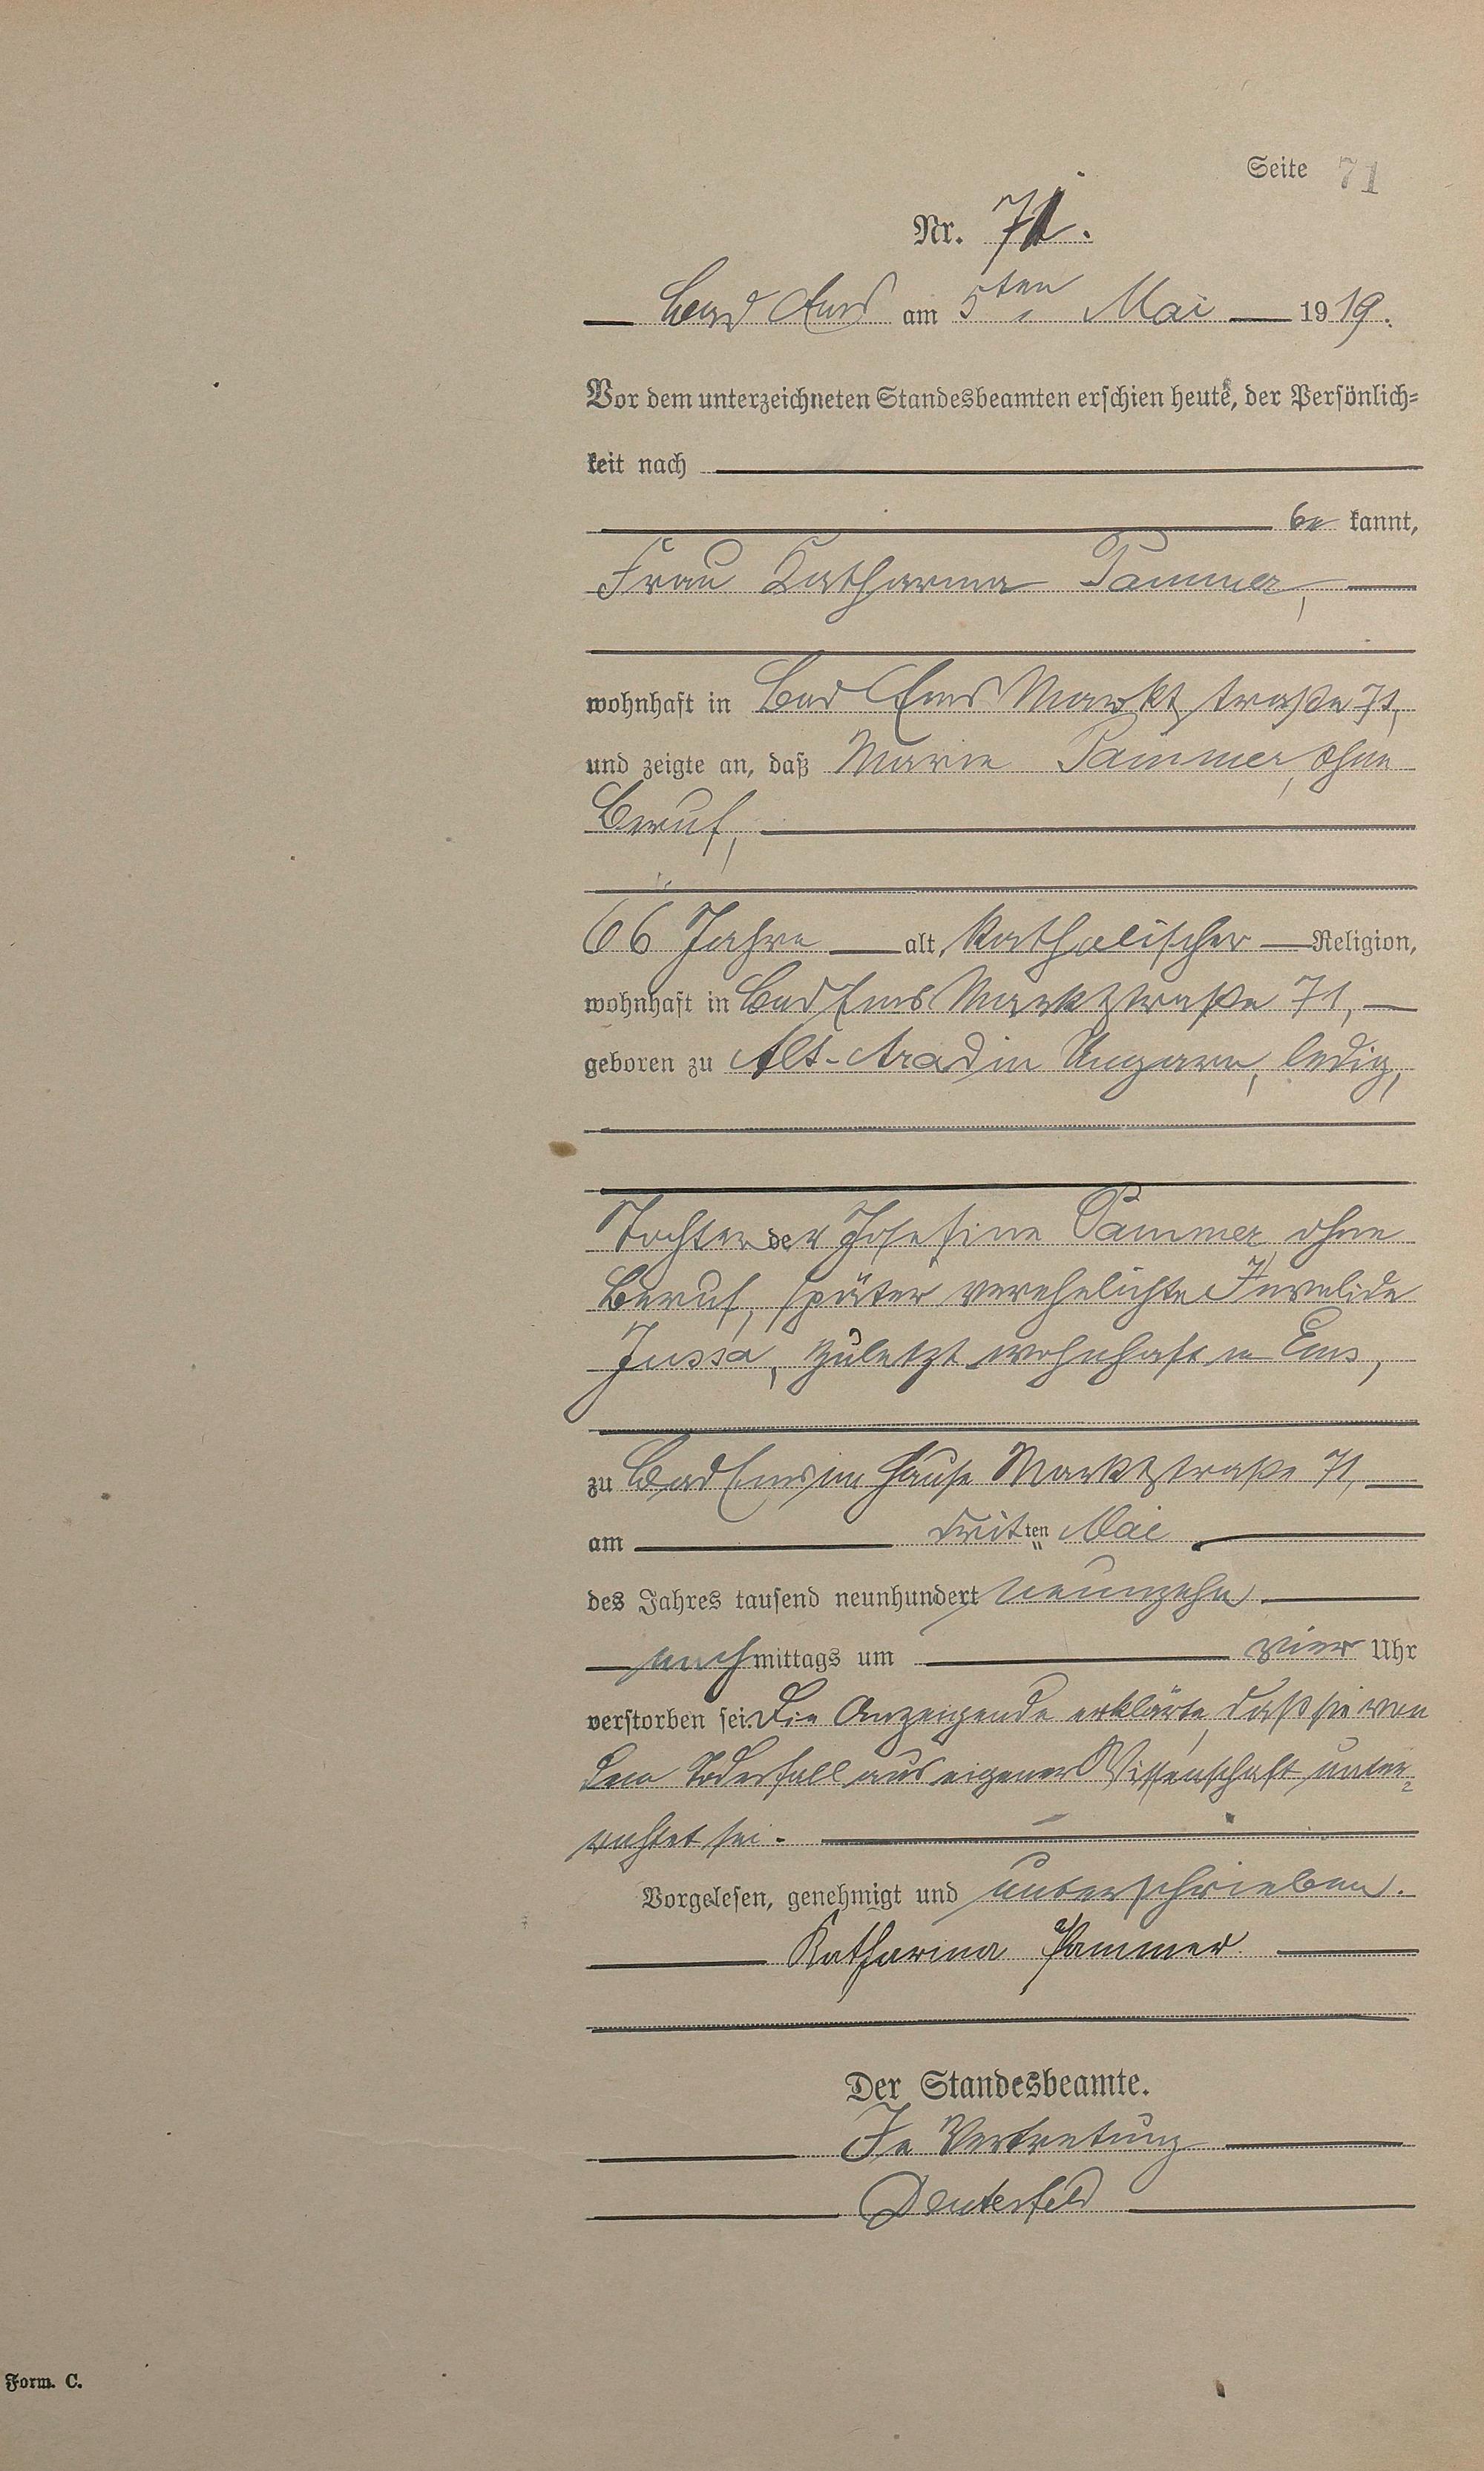 Seite 71
Nr. 71.
Bad Ems am 5ten Mai 1919.
Vor dem unterzeichneten Standesbeamten erschien heute, der Persönlich-
keit nach
be kannt,
Frau Katharina Pammer,
wohnhaft in Bad Ems Marktstraße 71,
und zeigte an, daß Marie Pammer, ohne
Beruf,
66 Jahre alt, katholischer Religion,
wohnhaft in Bad Ems Marktstraße 71,
geboren zu Alt-Arad in Ungarn, ledig,
Tochter der Josefine Pammer ohne
Beruf, später verehelichte Invalide
Jussa, zuletzt wohnhaft in Ems,
zu Bad Ems im Hause Marktstraße 71,
am dritten Mai
des Jahres tausend neunhundert neunzehn
nachmittags um vier Uhr
verstorben sei. Die Anzeigende erklärte, daß sie von
dem Todesfall aus eigener Wissenschaft unter-
richtet sei.
Vorgelesen, genehmigt und unterschrieben.
Katharina Pammer
Der Standesbeamte.
In Vertretung
Form. C.